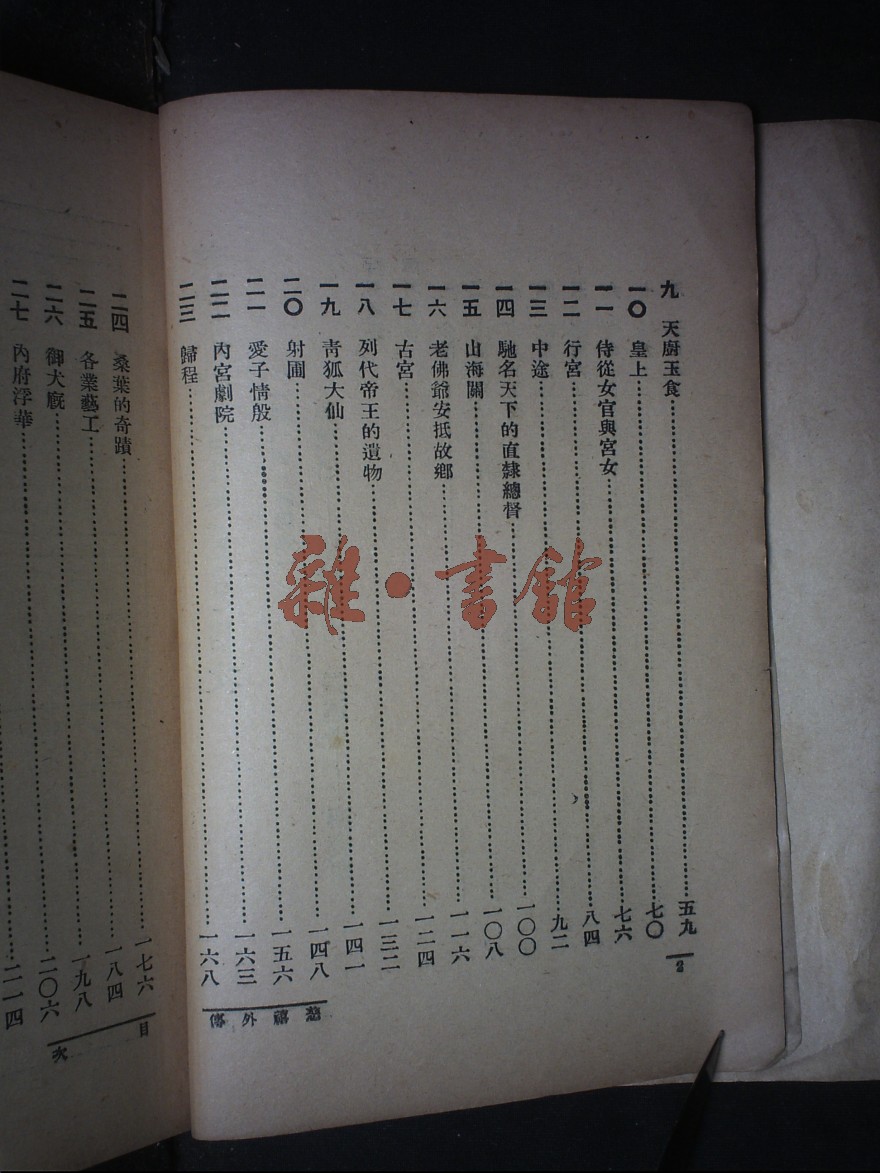 九　天廚玉食……五九
一〇　皇上……七〇
一一　侍從女官與宮女……七六
一二　行宮……八四
一三　中途……九二
一四　馳名天下的直隸總督……一〇〇
一五　山海關……一〇八
一六　老佛爺安抵故鄉……一一六
一七　古宮……一二四
一八　列代帝王的遺物……一三二
一九　青狐大仙……一四一
二〇　射圃……一四八
二一　愛子情殷……一五六
二二　內宮劇院……一六三
二三　歸程……一六八
2
慈禧外傳
二四　桑葉的奇蹟……一七六
二五　各業藝工……一八四
二六　御犬廐……一九八
二七　內府浮華……二〇六
二一四
目次
雜·書館